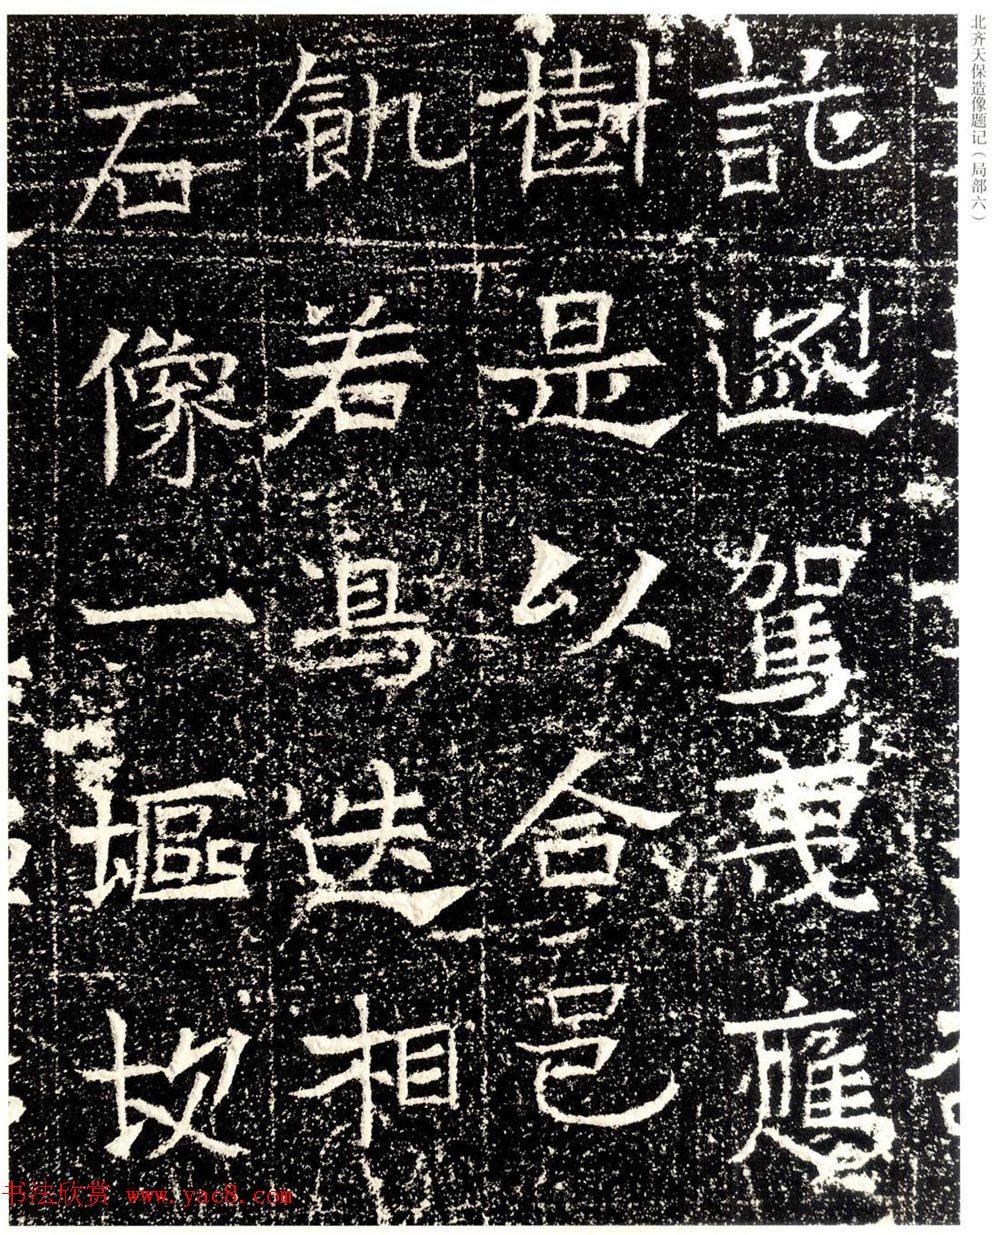 北齐天保造像题记（局部六）
託遯駕蔓應
樹是以合邑
飢若鳥迭相
石像一堰故
书法欣赏 www.yac8.com